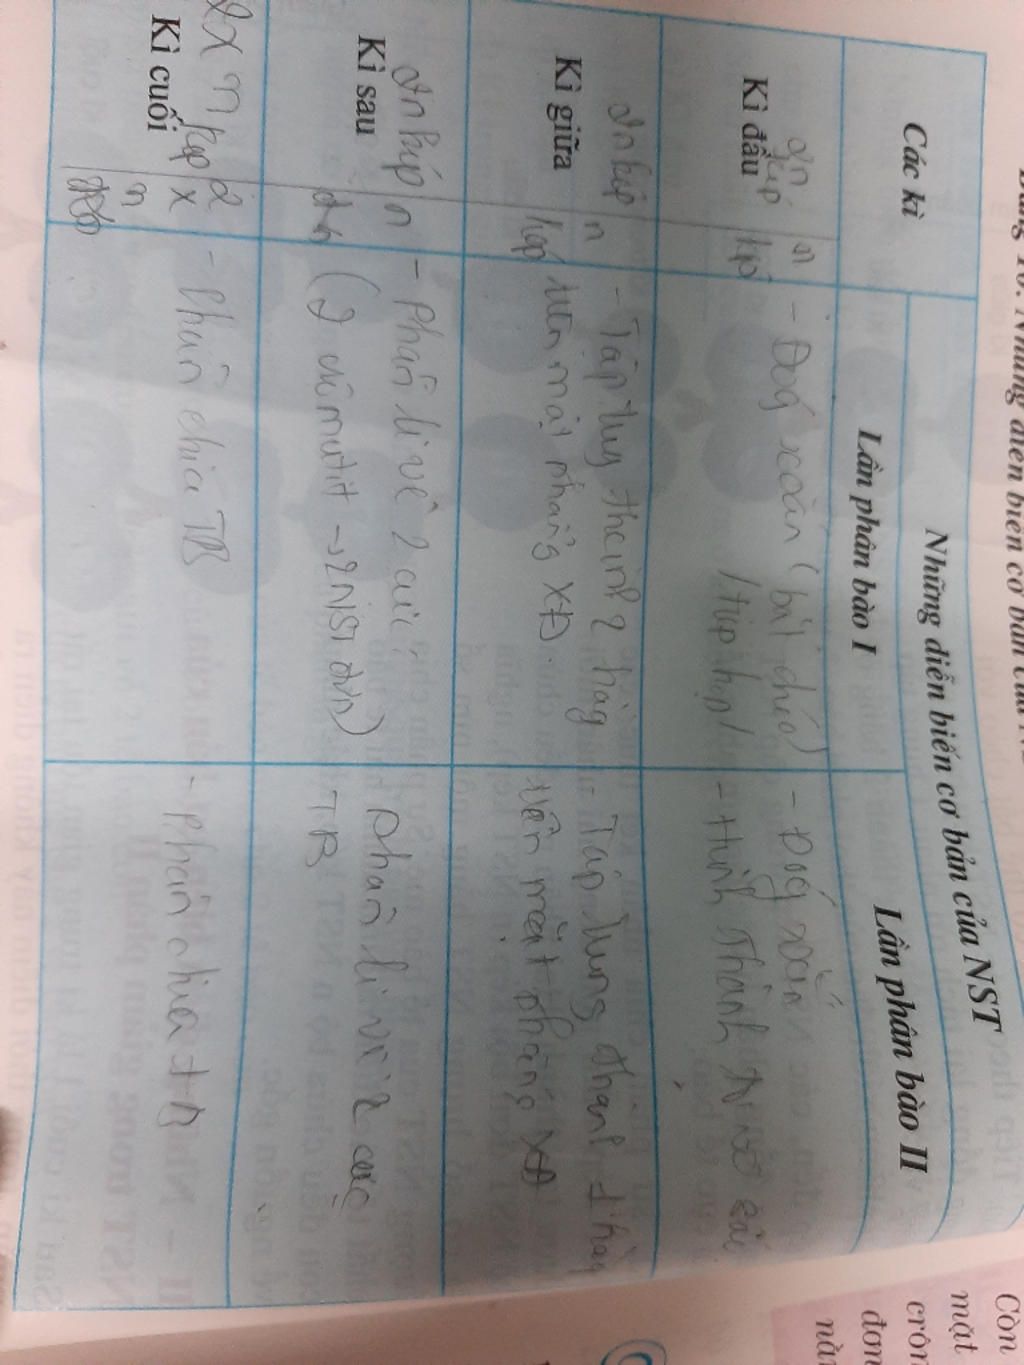 Bảng 10. Những diễn biến cơ bản của
Các kì
Những diễn biến cơ bản của NST
Lần phân bào I
Lần phân bào II
2n kép
Kì đầu
n kép
- Đóng xoắn (bắt chéo)
/tiếp hợp/
- Đóng xoắn
- Hình Thành
2n kép
Kì giữa
n kép
- Tập trung thành 2 hàng
trên mặt phẳng XĐ.
Tập trung thành 1 hàng
trên mặt phẳng XĐ
2n kép
Kì sau
n
- phân li về 2 cực
(2 cromatit → 2 NST đơn)
phân li về 2 cực
TB
2 x n kép
Kì cuối
2
x
n
- phân chia TB
- phân chia TB
Còn
mặt
crôn
đơn
này